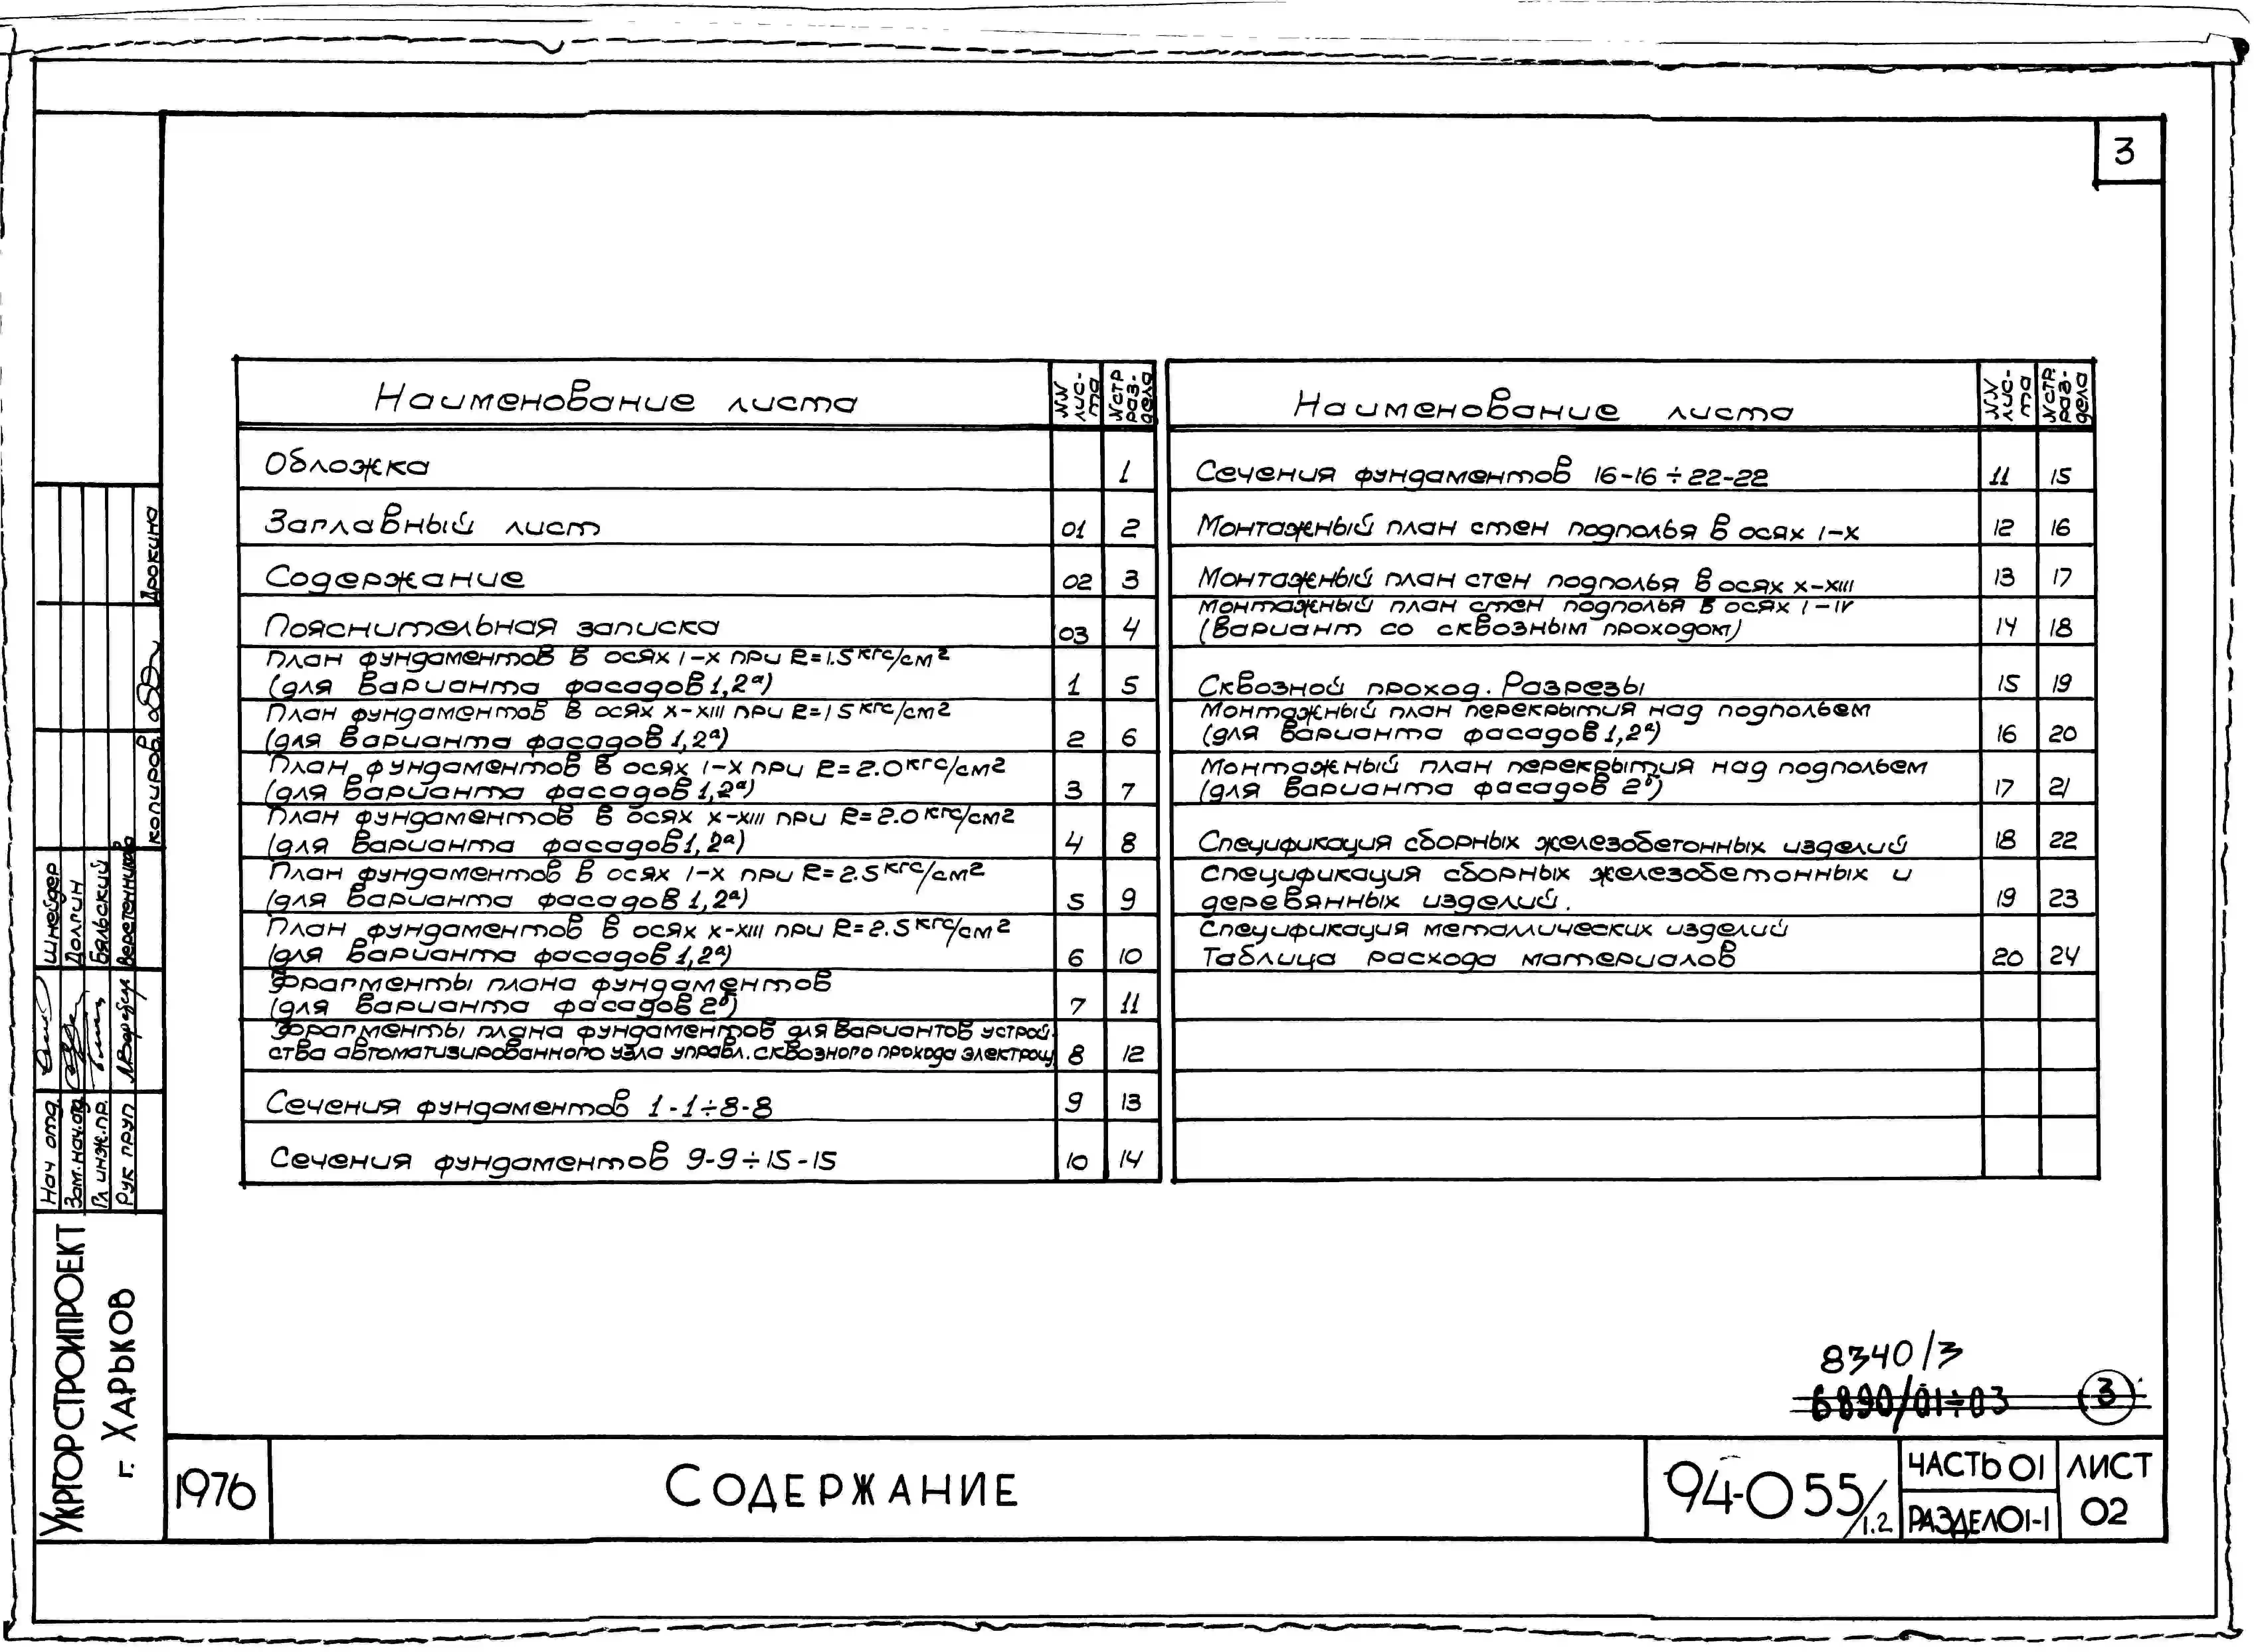 3
Наименование листа
NN лис-та
№стр раз-дела
Обложка 1
Заглавный лист 01 2
Содержание 02 3
Пояснительная записка 03 4
План фундаментов в осях I-X при R=1.5 кгс/см2
(для варианта фасадов 1,2а) 1 5
План фундаментов в осях X-XIII при R=1.5 кгс/см2
(для варианта фасадов 1,2а) 2 6
План фундаментов в осях I-X при R=2.0 кгс/см2
(для варианта фасадов 1,2а) 3 7
План фундаментов в осях X-XIII при R=2.0 кгс/см2
(для варианта фасадов 1,2а) 4 8
План фундаментов в осях I-X при R=2.5 кгс/см2
(для варианта фасадов 1,2а) 5 9
План фундаментов в осях X-XIII при R=2.5 кгс/см2
(для варианта фасадов 1,2а) 6 10
Фрагменты плана фундаментов
(для варианта фасадов 2б) 7 11
Фрагменты плана фундаментов для вариантов устрой-
ства автоматизированного узла управл. сквозного прохода электрощ 8 12
Сечения фундаментов 1-1÷8-8 9 13
Сечения фундаментов 9-9÷15-15 10 14
Наименование листа
NN лис-та
№стр. раз-дела
Сечения фундаментов 16-16÷22-22 11 15
Монтажный план стен подполья в осях I-X 12 16
Монтажный план стен подполья в осях X-XIII 13 17
Монтажный план стен подполья в осях I-IV
(вариант со сквозным проходом) 14 18
Сквозной проход. Разрезы 15 19
Монтажный план перекрытия над подпольем
(для варианта фасадов 1,2а) 16 20
Монтажный план перекрытия над подпольем
(для варианта фасадов 2б) 17 21
Спецификация сборных железобетонных изделий 18 22
Спецификация сборных железобетонных и
деревянных изделий. 19 23
Спецификация металлических изделий
Таблица расхода материалов 20 24
Дрокина
копиров.
Шнейдер
Долгин
Бяльский
Веретенников
Нач отд.
Зам.нач.отд
Гл инж.пр.
Рук груп
УКРГОРСТРОЙПРОЕКТ
г. ХАРЬКОВ
8340/3
6890/01÷03 3
1976
СОДЕРЖАНИЕ
94-055/1.2
ЧАСТЬ 01
РАЗДЕЛ 01-1
ЛИСТ
02